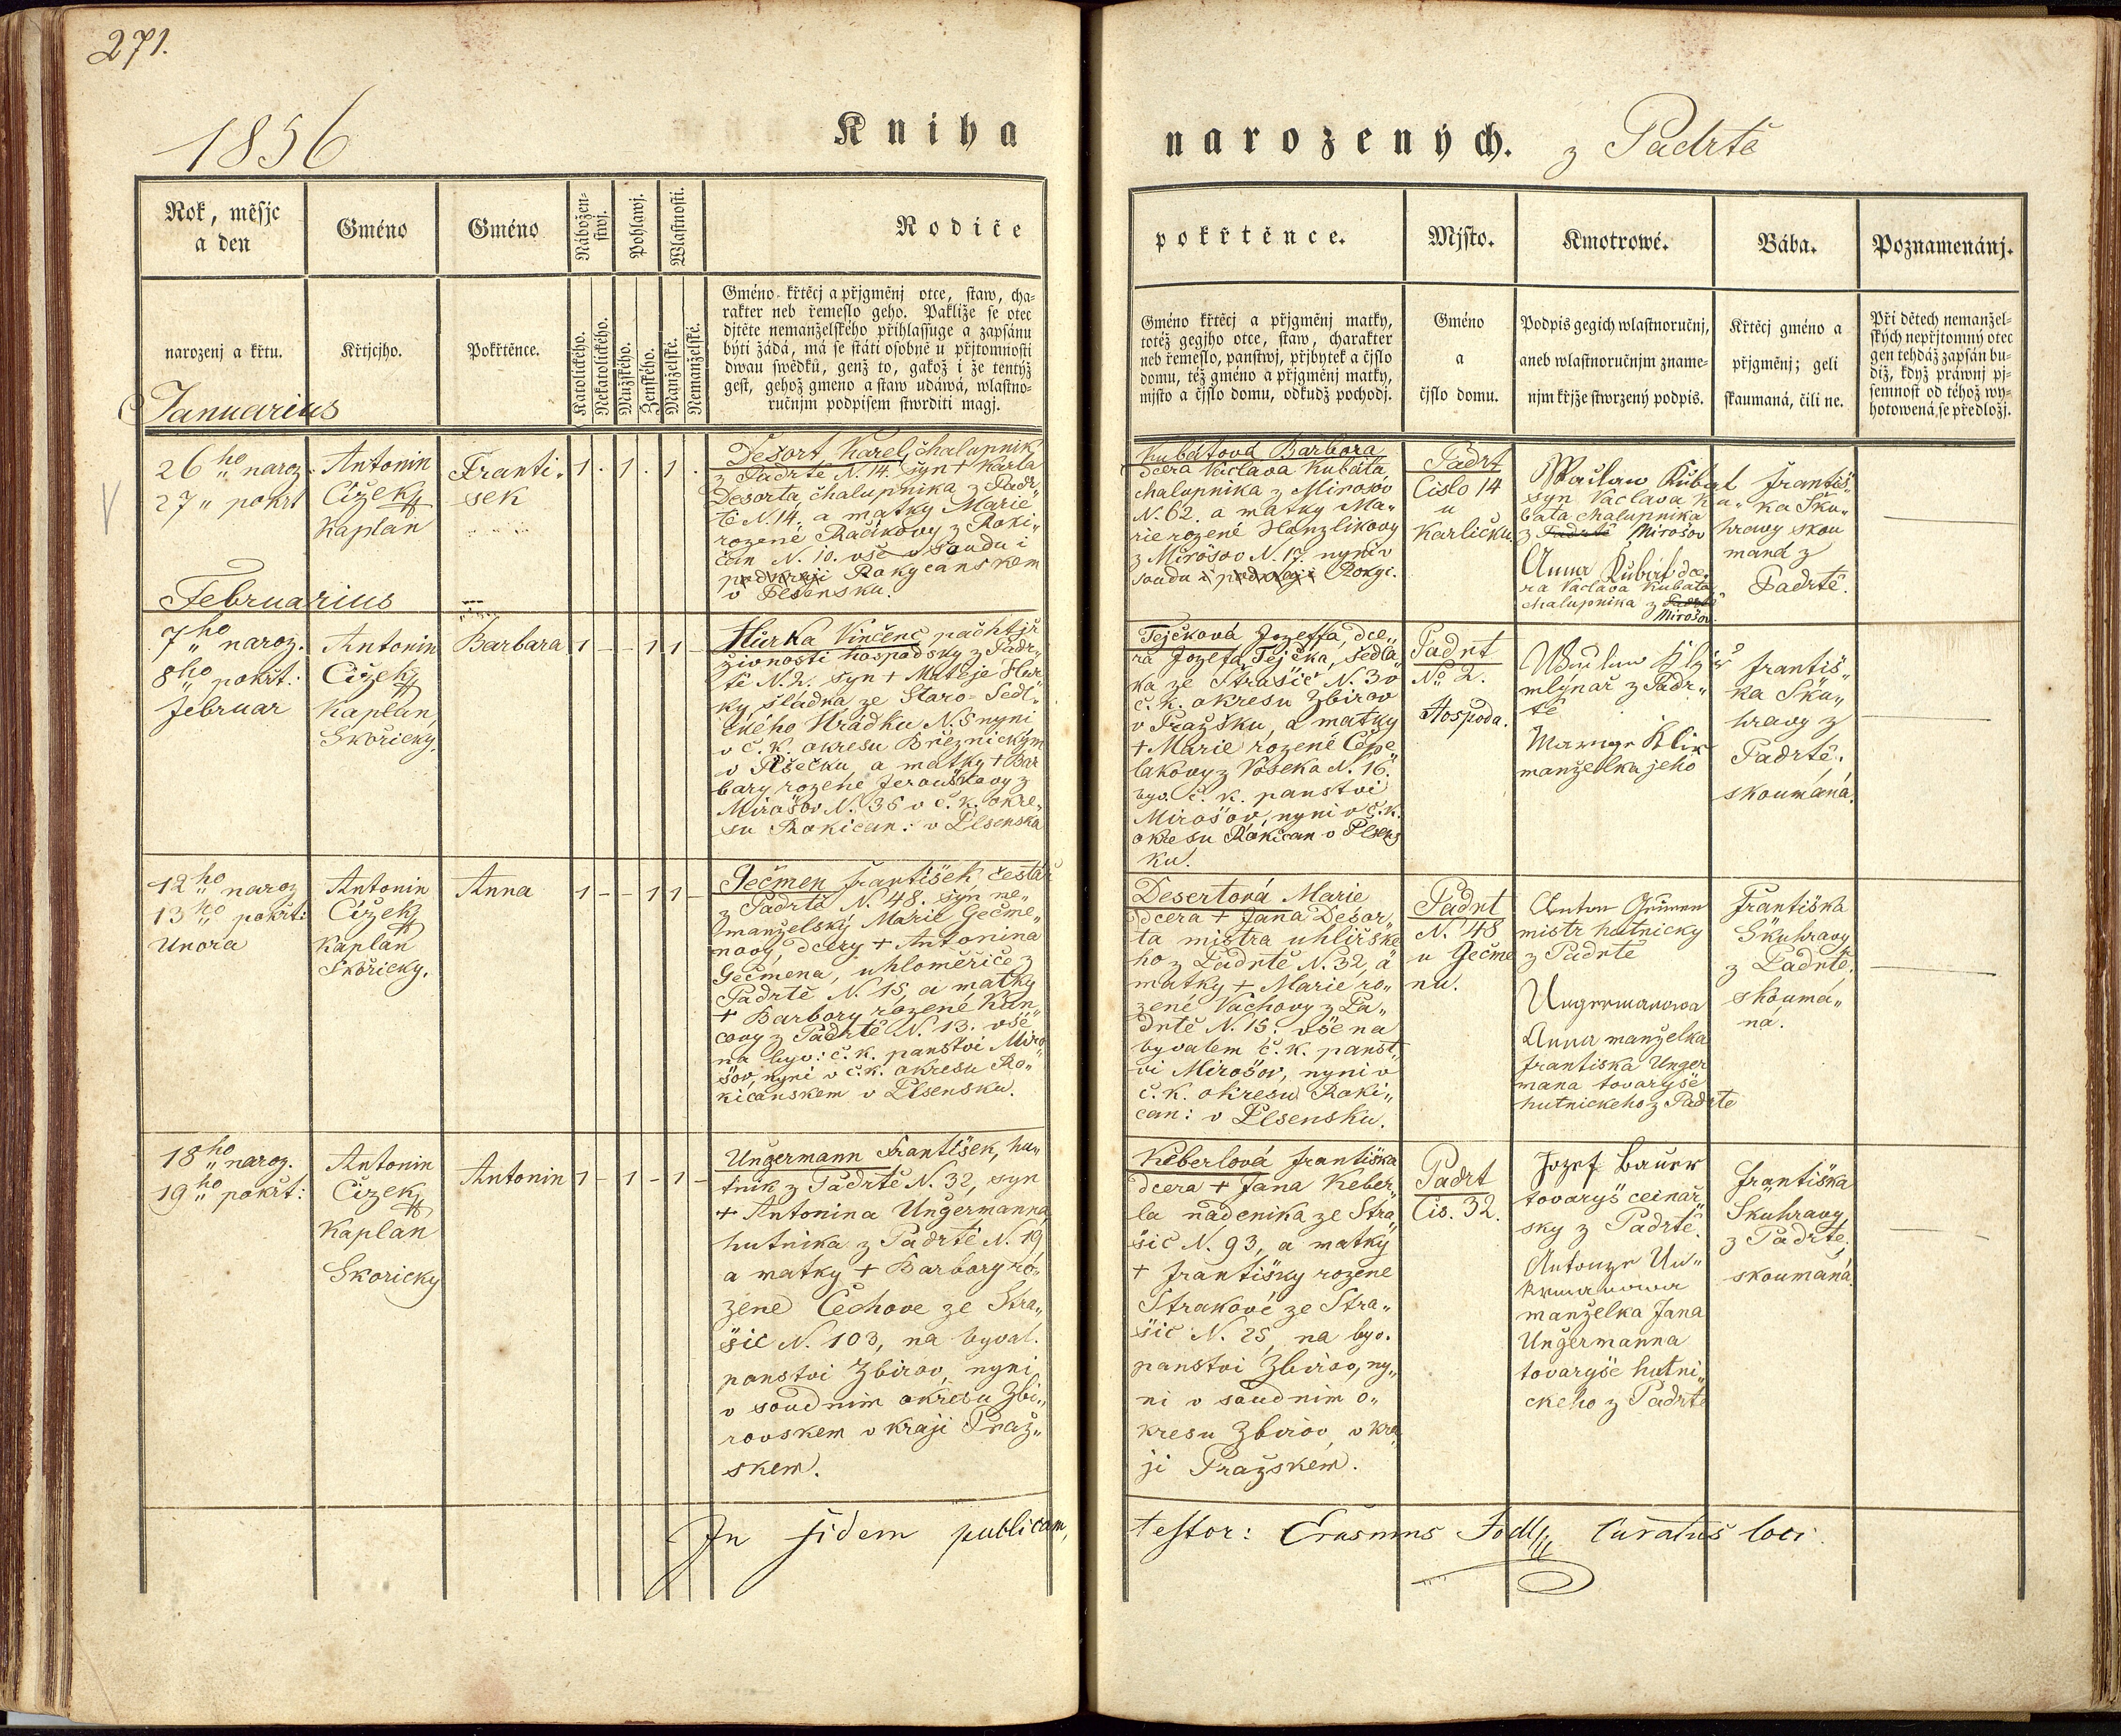 271.
1856
Kniha
narozených. z Padrtě
Rok, měsjc
a den
Gméno
Gméno
Nábožen-
stwj.
Pohlawj.
Wlastnosti.
Rodiče
pokřtěnce.
Mjsto.
Kmotrowé.
Bába.
Poznamenánj.
narozenj a křtu.
Křtjcjho.
Pokřtěnce.
Katolického.
Nekatolického.
Mužského.
Ženského.
Manželské.
Nemanželské.
Gméno křtěcj a přjgměnj otce, staw, cha-
rakter neb řemeslo geho. Pakliže se otec
djtěte nemanželského přihlassuge a zapsánu
býti žádá, má se státi osobně u přjtomnosti
dwau swědků, genž to, gakož i že tentýž
gest, gehož gmeno a staw udáwá, wlastno-
ručnjm podpisem stwrditi magj.
Gméno křtěcj a přjgměnj matky,
totéž gegjho otce, staw, charakter
neb řemeslo, panstwj, přjbytek a čjslo
domu, též gméno a přjgměnj matky,
mjsto a čjslo domu, odkudž pochodj.
Gméno
a
čjslo domu.
Podpis gegich wlastnoručnj,
aneb wlastnoručnjm zname-
njm křjže stwrzený podpis.
Křtěcj gméno a
přjgměnj; geli
skaumaná, čili ne.
Při dětech nemanžel-
ských nepřjtomný otec
gen tehdáž zapsán bu-
diž, když práwnj pj-
semnost od téhož wy-
hotowená se předložj.
Januarius
26ho naroz.
27" pokrt
Antonin
Cižek
Kaplan
Franti-
sek
1 . 1 . 1 .
Desort Karel, chalupnik
z Padrtě N. 14. syn + Karla
Desorta chalupnika z Padr„
tě N. 14, a matky Marie
rozené Račikovy z Roki„
čan N. 10. vše v soudu i
podkraji Rokycanskem
v Plsensku.
Kubatová Barbora
dcera Václava Kubata
chalupnika z Mirosov
N. 62. a matky Ma„
rie rozené Hanzlikovy
z Mirósov N. 17 nyní v
soudu i podkraji Rokyc.
Padrt
Cislo 14
u
Karličku.
Wáclaw Kubat
syn Vaclava Ku„
bata chalupnika
z Padrtě Mirošov
Anna Kubat dce„
ra Vaclava Kubata
chalupnika z Padrtě
Mirošov.
Františ„
ka Sku„
hravy skou
maná z
Padrtě.
Februarius
7ho naroz.
8ho pokřt:
Februar
Antonin
Cižek
Kaplan,
Skořicky.
Barbara
1 - - 1 1 -
Hůrka Vinčenc pachtýř
živnosti hospodsky z Padr„
tě N. 2. syn + Matěje Hůr„
ky, sládka ze Staro-Sedl„
ckého Hrádku N. 5 nyni
v č. k. okresu Březnickým
v Písečku a matky + Bar
bary rozené Jerouškovy z
Mirošov N. 36 v č. k. okre„
su Rokican: v Plsenska
Tejčková Jozeffa, dce„
ra Jozefa Tejčka, sedla„
ka ze Strašic N. 30
č. k. okresu Zbirov
v Pražsku, a matky
+ Marie rozené Cepe„
lakovy z Voseka N. 16.
byv. č. k. panstvi
Mirošov, nyni v č. k.
okresu Rokican v Plsens
ku.
Padrt
No 2.
Hospoda.
mlynař z Padr„
tě
manželka jeho
Františ„
ka Sku„
hravy z
Padrtě,
skoumaná.
12ho naroz
13ho pokřt:
Unora
Antonin
Cižek
Kaplan
Skořicky.
Anna
1 - - 1 1 -
Gečmen František čestář
z Padrtě N. 48. syn ne„
manželský Marie Gečme„
novy, dcery + Antonina
Gečmena, uhloměřiče z
Padrtě N. 15, a matky
+ Barbory rozené Kun„
covy z Padrtě N. 13. vše
na byv: č. k. panstvi Miro„
šov, nyni v č. k. okresu Ro„
kicanskem v Plsensku.
Desertová Marie
dcera + Jana Desor„
ta mistra uhlířske„
ho z Padrtě N. 32, a
matky + Marie ro„
zené Vachovy z Pa„
drtě N. 15: vše na
byvalem č. k. panst„
vi Mirošov, nyni v
č. k. okresu Roki„
can: v Plsensku.
Padrt
N. 48
u Gečme
nu.
mistr hutnicky
z Padrtě
Ungermanowa
Anna manželka
Frantiska Unger
mana tovaryše
hutnickeho z Padrte
Františka
Skuhravy
z Padrtě,
skouma„
ná.
18ho naroz.
19ho pokřt:
Antonin
Cizek
Kaplan
Skoricky
Antonin
1 - 1 - 1 -
Ungermann František, hu„
tnik z Padrtě N. 32, syn
+ Antonina Ungermanna
hutnika z Padrtě N. 19
a matky + Barbory ro„
zene Čechove ze Stra„
šic N. 103, na byval.
panstvi Zbirov, nyni
v soudnim okresu Zbi„
rovskem v kraji Praž„
skem.
Keberlová Frantiska
dcera + Jana Keber„
la nádenika ze Stra„
šic N. 93, a matky
+ Františky rozene
Strakové ze Stra„
šic N. 25, na byv.
panstvi Zbirov, ny„
ni v soudnim o„
kresu Zbirov, v kra„
ji Pražskem.
Padrt
Cis. 32.
Jozef Bauer
tovaryš ceinař„
sky z Padrtě.
manželka Jana
Ungermanna
tovaryše hutni„
ckeho z Padrtě
Františka
Skuhravy
z Padrtě,
skoumaná
In fidem publicam,
testor: Erasmus Fodl, Curatus loci.